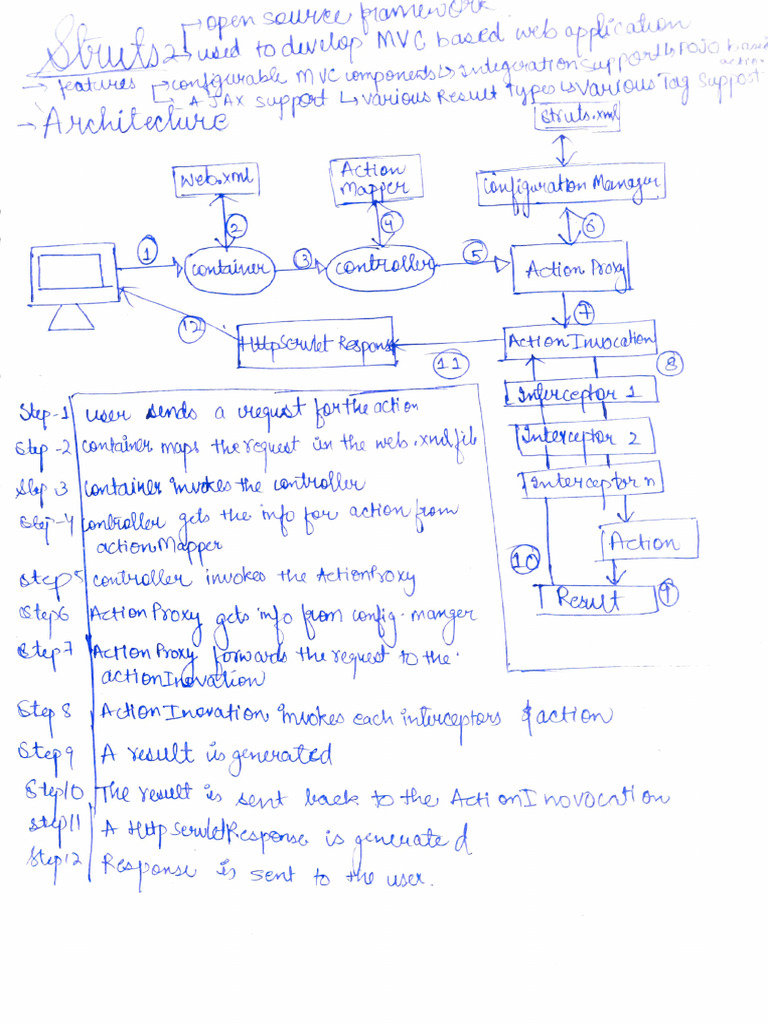 open source framework
Struts2 → used to develop MVC based web application
→ features configurable MVC components ↳ integration support ↳ POJO based action
→ AJAX support ↳ various Result Types ↳ various Tag support
→ Architecture
Struts.xml
Web.xml
Action Mapper
Configuration Manager
2
4
6
1
container
3
controller
5
Action Proxy
7
12
HttpServlet Response
11
Action Invocation
8
Interceptor 1
Interceptor 2
Interceptor n
Action
10
Result
9
Step-1 user sends a request for the action
Step-2 container maps the request in the web.xml file
Step 3 container invokes the controller
Step-4 controller gets the info for action from
actionMapper
Step 5 controller invokes the ActionProxy
Step6 ActionProxy gets info from config. manger
Step7 ActionProxy forwards the request to the
actionInovation
Step 8 ActionInovation invokes each interceptors & action
Step9 A result is generated
Step10 The result is sent back to the ActionInovocation
Step11 A HttpServletResponse is generated
Step12 Response is sent to the user.